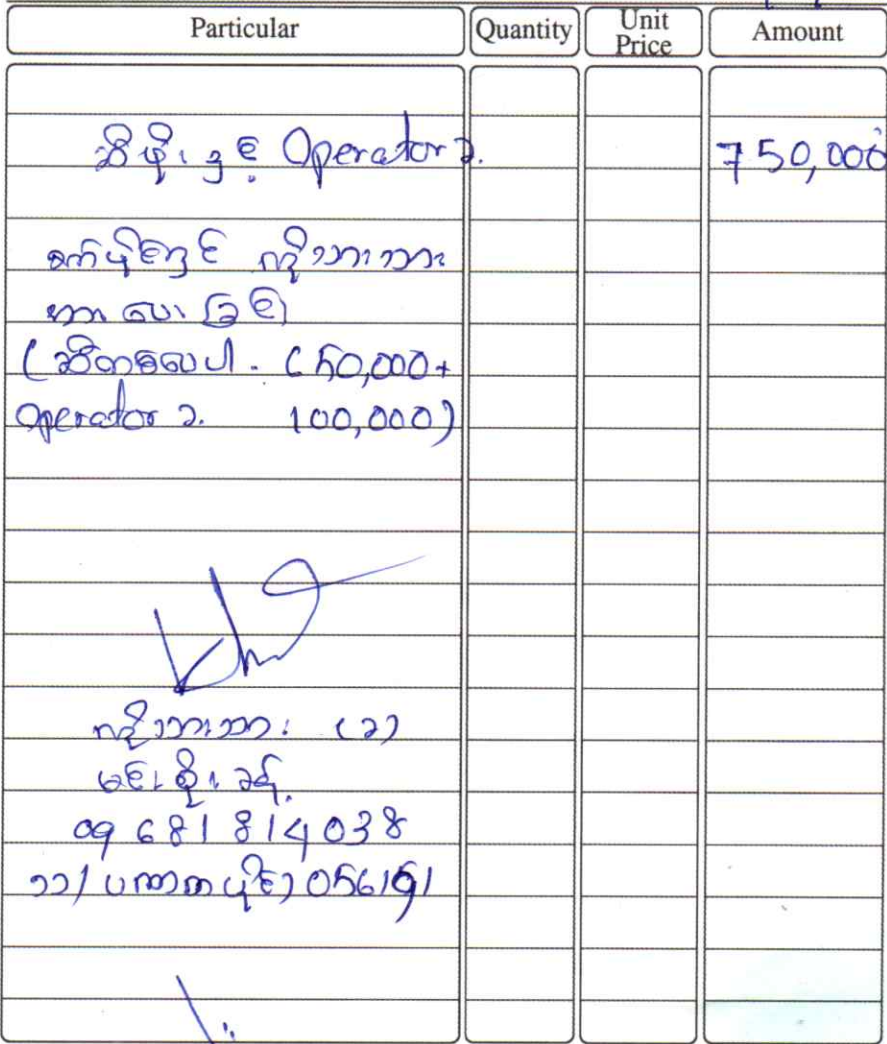 Particular Quantity Unit Price Amount
ဆီဖိုးနှင့် Operator ခ. 750,000
စက်ပိုင်ရှင် ကိုသားသား
အား ပေးခြင်း
( ဆီတစ်ပေပါ - 650,000 +
Operator ခ. 100,000)
ကိုသားသား (ခ)
မင်းစိုးခန့်
09 681 814 038
၁၁/ပဏတ(နိုင်) 056191